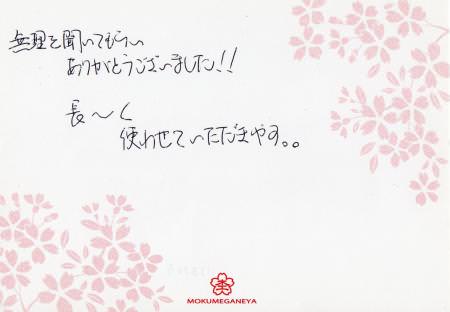 無理を聞いてもらい
ありがとうございました!!
長〜く
使わせていただきやす。。
MOKUMEGANEYA